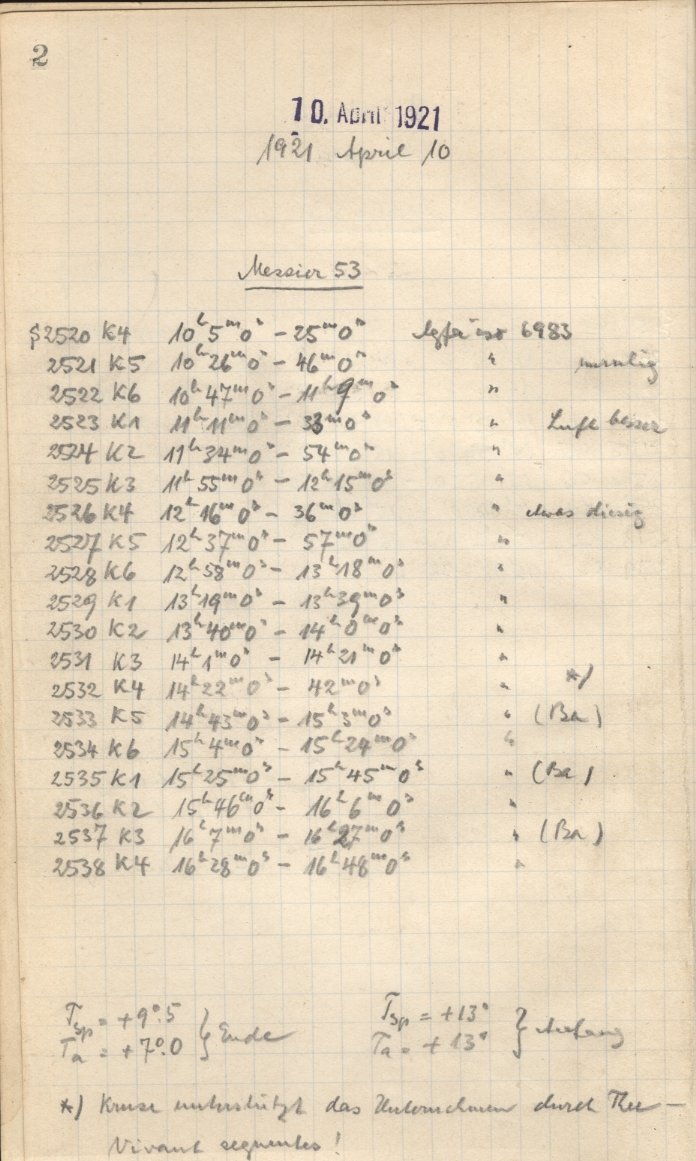 2
10. April 1921
1921 April 10
Messier 53
S2520 K4 10h5m0s – 25m0s Agfa iso 6983
2521 K5 10h26m0s – 46m0s " unruhig
2522 K6 10h47m0s – 11h9m0s "
2523 K1 11h11m0s – 33m0s " Luft besser
2524 K2 11h34m0s – 54m0s "
2525 K3 11h55m0s – 12h15m0s "
2526 K4 12h16m0s – 36m0s " etwas diesig
2527 K5 12h37m0s – 57m0s "
2528 K6 12h58m0s – 13h18m0s "
2529 K1 13h19m0s – 13h39m0s "
2530 K2 13h40m0s – 14h0m0s "
2531 K3 14h1m0s – 14h21m0s "
2532 K4 14h22m0s – 42m0s " *)
2533 K5 14h43m0s – 15h3m0s " (Ba)
2534 K6 15h4m0s – 15h24m0s "
2535 K1 15h25m0s – 15h45m0s " (Ba)
2536 K2 15h46m0s – 16h6m0s "
2537 K3 16h7m0s – 16h27m0s " (Ba)
2538 K4 16h28m0s – 16h48m0s "
Tsp = +9°.5 } Ende Tsp = +13° } Anfang
Ta = +7°.0 Ta = +13°
*) Kruse unterstützt das Unternehmen durch Thee –
Vivant sequentes!